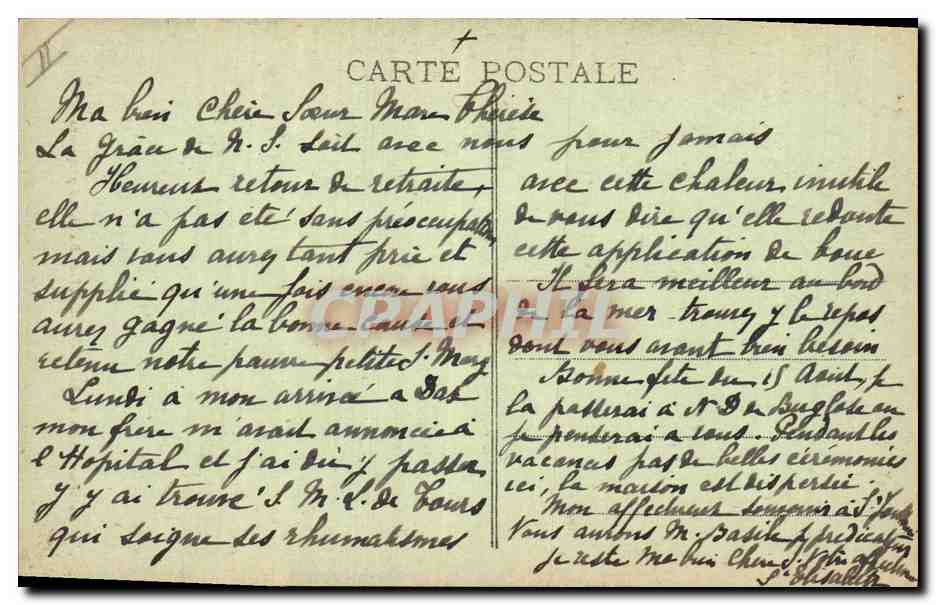 II
CARTE POSTALE
Ma bien Chère Sœur Marie Thérèse
La Grâce de N. S. soit avec nous pour jamais
Heureux retour de retraite,
elle n'a pas été sans préoccupation
mais vous aurez tant prié et
supplié qu'une fois encore vous
aurez gagné la bonne cause et
retenu notre pauvre petite S. Marg
Lundi à mon arrivée a Dax
mon frère m'avait annoncée à
l'Hopital et j'ai dû y passer
J'y ai trouvé S. M. L. de Tours
qui soigne ses rhumatismes
avec cette chaleur, inutile
de vous dire qu'elle redoute
cette application de boue
Il sera meilleur au bord
de la mer trouvez y le repos
dont vous avant bien besoin
Bonne fete du 15 Aout, je
la passerai à N D de Buglose ou
je penserai a vous. Pendant les
vacances pas de belles cérémonies
ici, la maison est dispersée.
Mon affectueux souvenir à Sr
Vous aurons M. Basile p prédicateur
je reste Ma bien Chère S. Votre
Sr Elisabeth
CPAPHIL